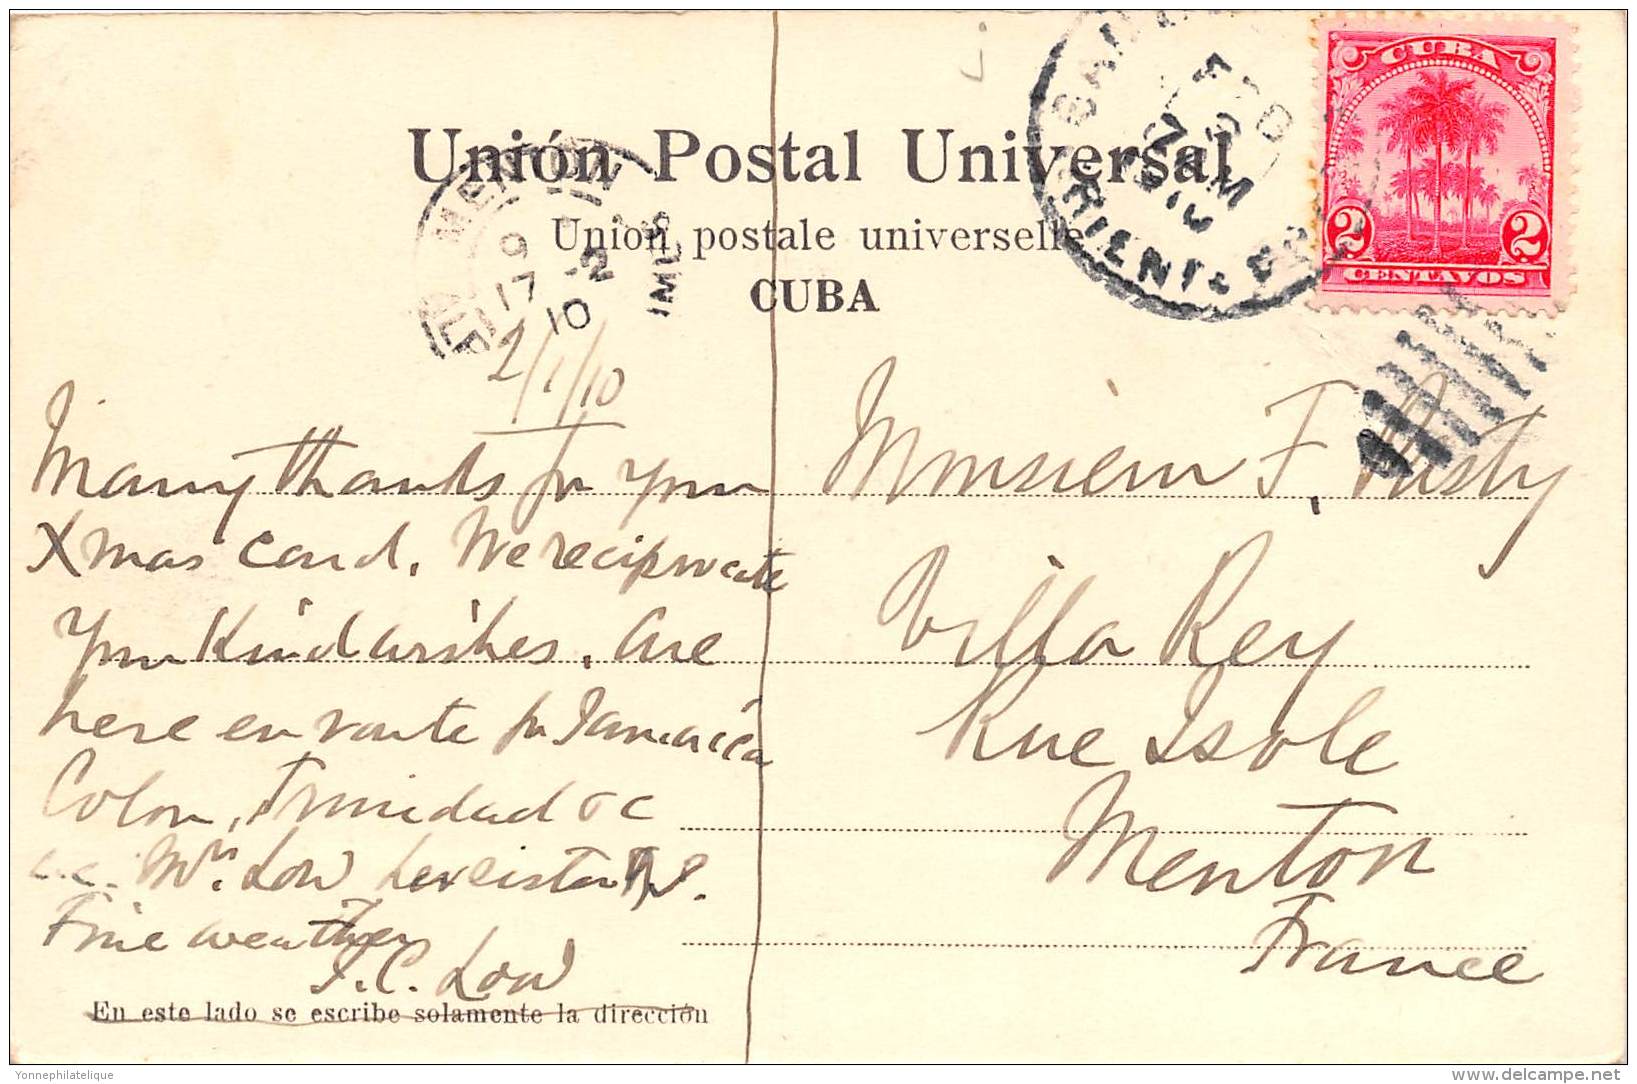 Unión Postal Universal
Union postale universelle
CUBA
CUBA
2 2
CENTAVOS
ORIENTE
FEB
7 AM
1910
MENTON
9
17 -2
10
2/1/10
Many thanks for your
Xmas card. We reciprocate
your kind wishes. Are
here en route for Jamaica
Colon, Trinidad
Low
Fine weather
Low
Monsieur F.
Villa Rey
Rue Isole
Menton
France
En este lado se escribe solamente la dirección
Yonnephilatelique
www.delcampe.net